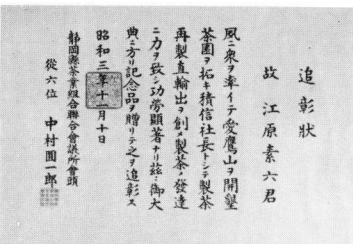 追彰狀
故 江原素六君
風ニ衆ヲ率イテ愛鷹山ヲ開墾
茶園ヲ拓キ積信社長トシテ製茶
再製直輸出ヲ創メ製茶ノ發達
ニ力ヲ致シ功勞顯著ナリ茲ニ御大
典ニ方リ記念品ヲ贈リテ之ヲ追彰ス
昭和三年十一月十日
靜岡縣茶業組合聯合會議所會頭
從六位 中村圓一郎